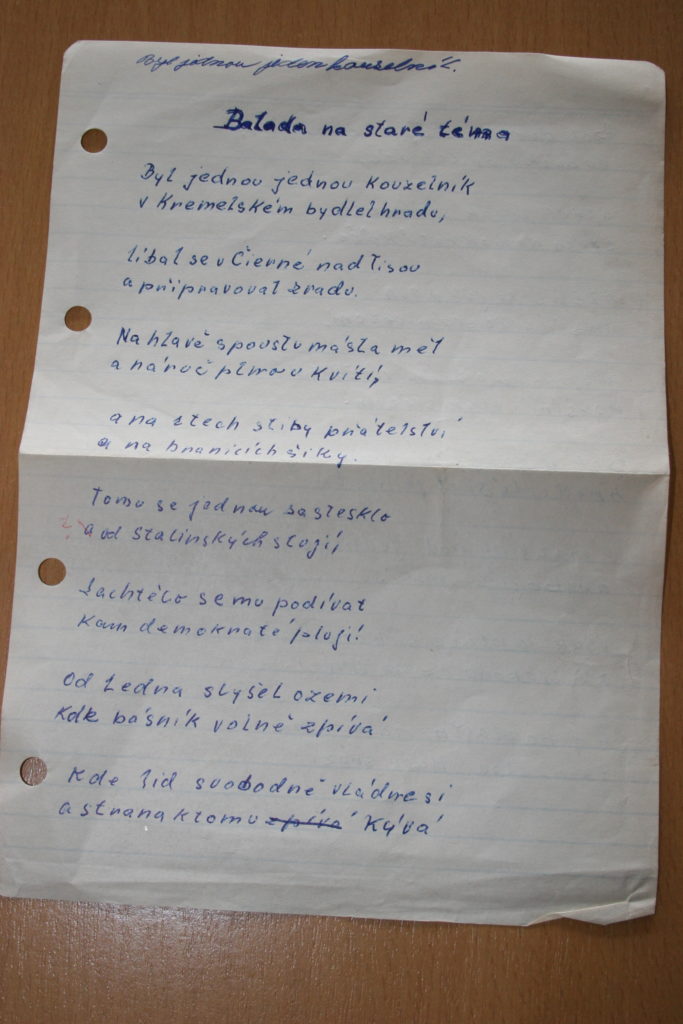 Byl jednou jeden kouzelník.
Balada na staré téma
Byl jednou jednou Kouzelník
v Kremelském bydlel hradu,
líbal se v Čierné nad Tisou
a připravoval zradu.
Na hlavě spoustu másla měl
a náruč plnou Kvítí,
a na rtech sliby přátelství
a na hranicích šiky.
Tomu se jednou zastesklo
a od Stalinských slují,
Zachtělo se mu podívat
Kam demokraté plují!
Od Ledna slyšel o zemi
Kde básník volně zpívá
Kde lid svobodně vládne si
a strana k tomu zpívá Kývá